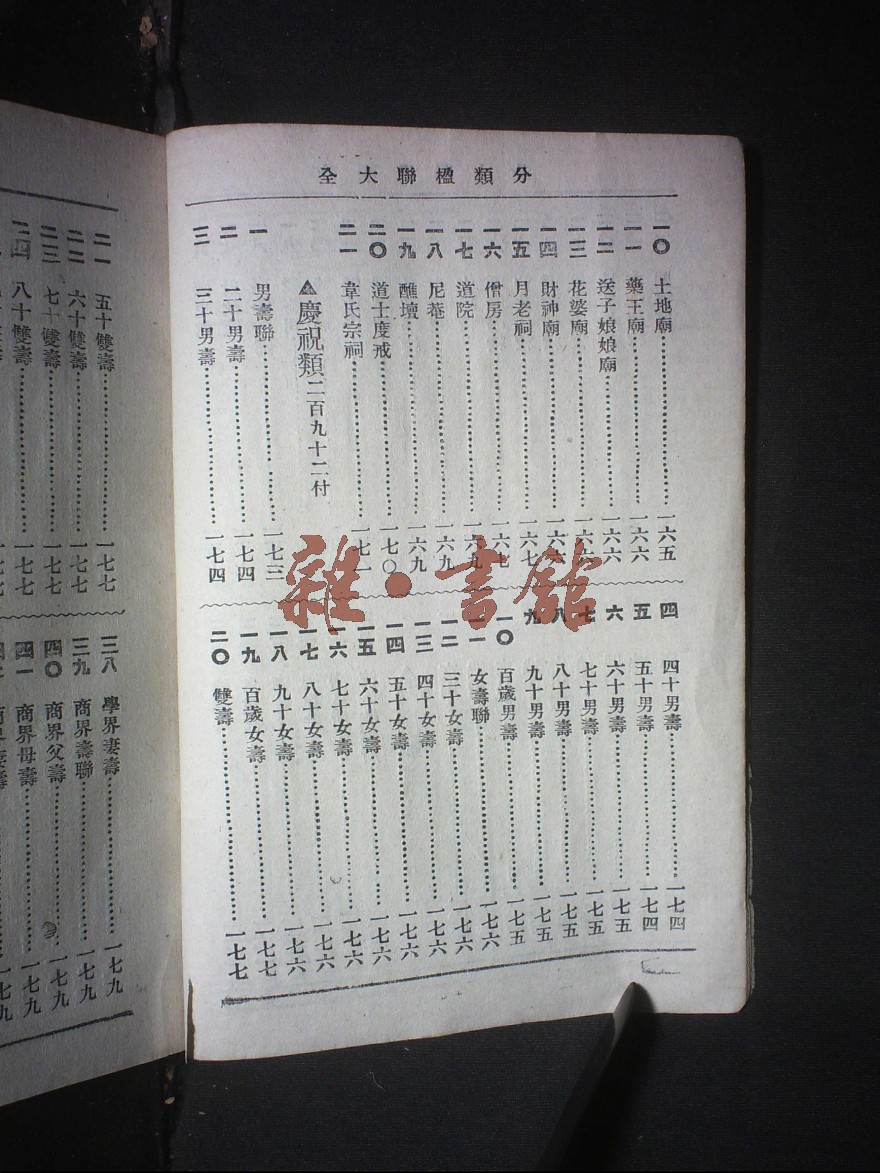 分類楹聯大全
一〇 土地廟…………一六五
一一 藥王廟…………一六六
一二 送子娘娘廟…………一六六
一三 花婆廟…………一六六
一四 財神廟…………一六六
一五 月老祠…………一六七
一六 僧房…………一六七
一七 道院…………一六九
一八 尼菴…………一六九
一九 醮壇…………一六九
二〇 道士度戒…………一七〇
二一 韋氏宗祠…………一七一
▲慶祝類 二百九十二付
一 男壽聯…………一七三
二 二十男壽…………一七四
三 三十男壽…………一七四
四 四十男壽…………一七四
五 五十男壽…………一七四
六 六十男壽…………一七五
七 七十男壽…………一七五
八 八十男壽…………一七五
九 九十男壽…………一七五
一〇 百歲男壽…………一七五
一一 女壽聯…………一七六
一二 三十女壽…………一七六
一三 四十女壽…………一七六
一四 五十女壽…………一七六
一五 六十女壽…………一七六
一六 七十女壽…………一七六
一七 八十女壽…………一七六
一八 九十女壽…………一七六
一九 百歲女壽…………一七七
二〇 雙壽…………一七七
二一 五十雙壽…………一七七
二二 六十雙壽…………一七七
二三 七十雙壽…………一七七
二四 八十雙壽…………一七七
三八 學界妻壽…………一七九
三九 商界壽聯…………一七九
四〇 商界父壽…………一七九
四一 商界母壽…………一七九
雜·書館